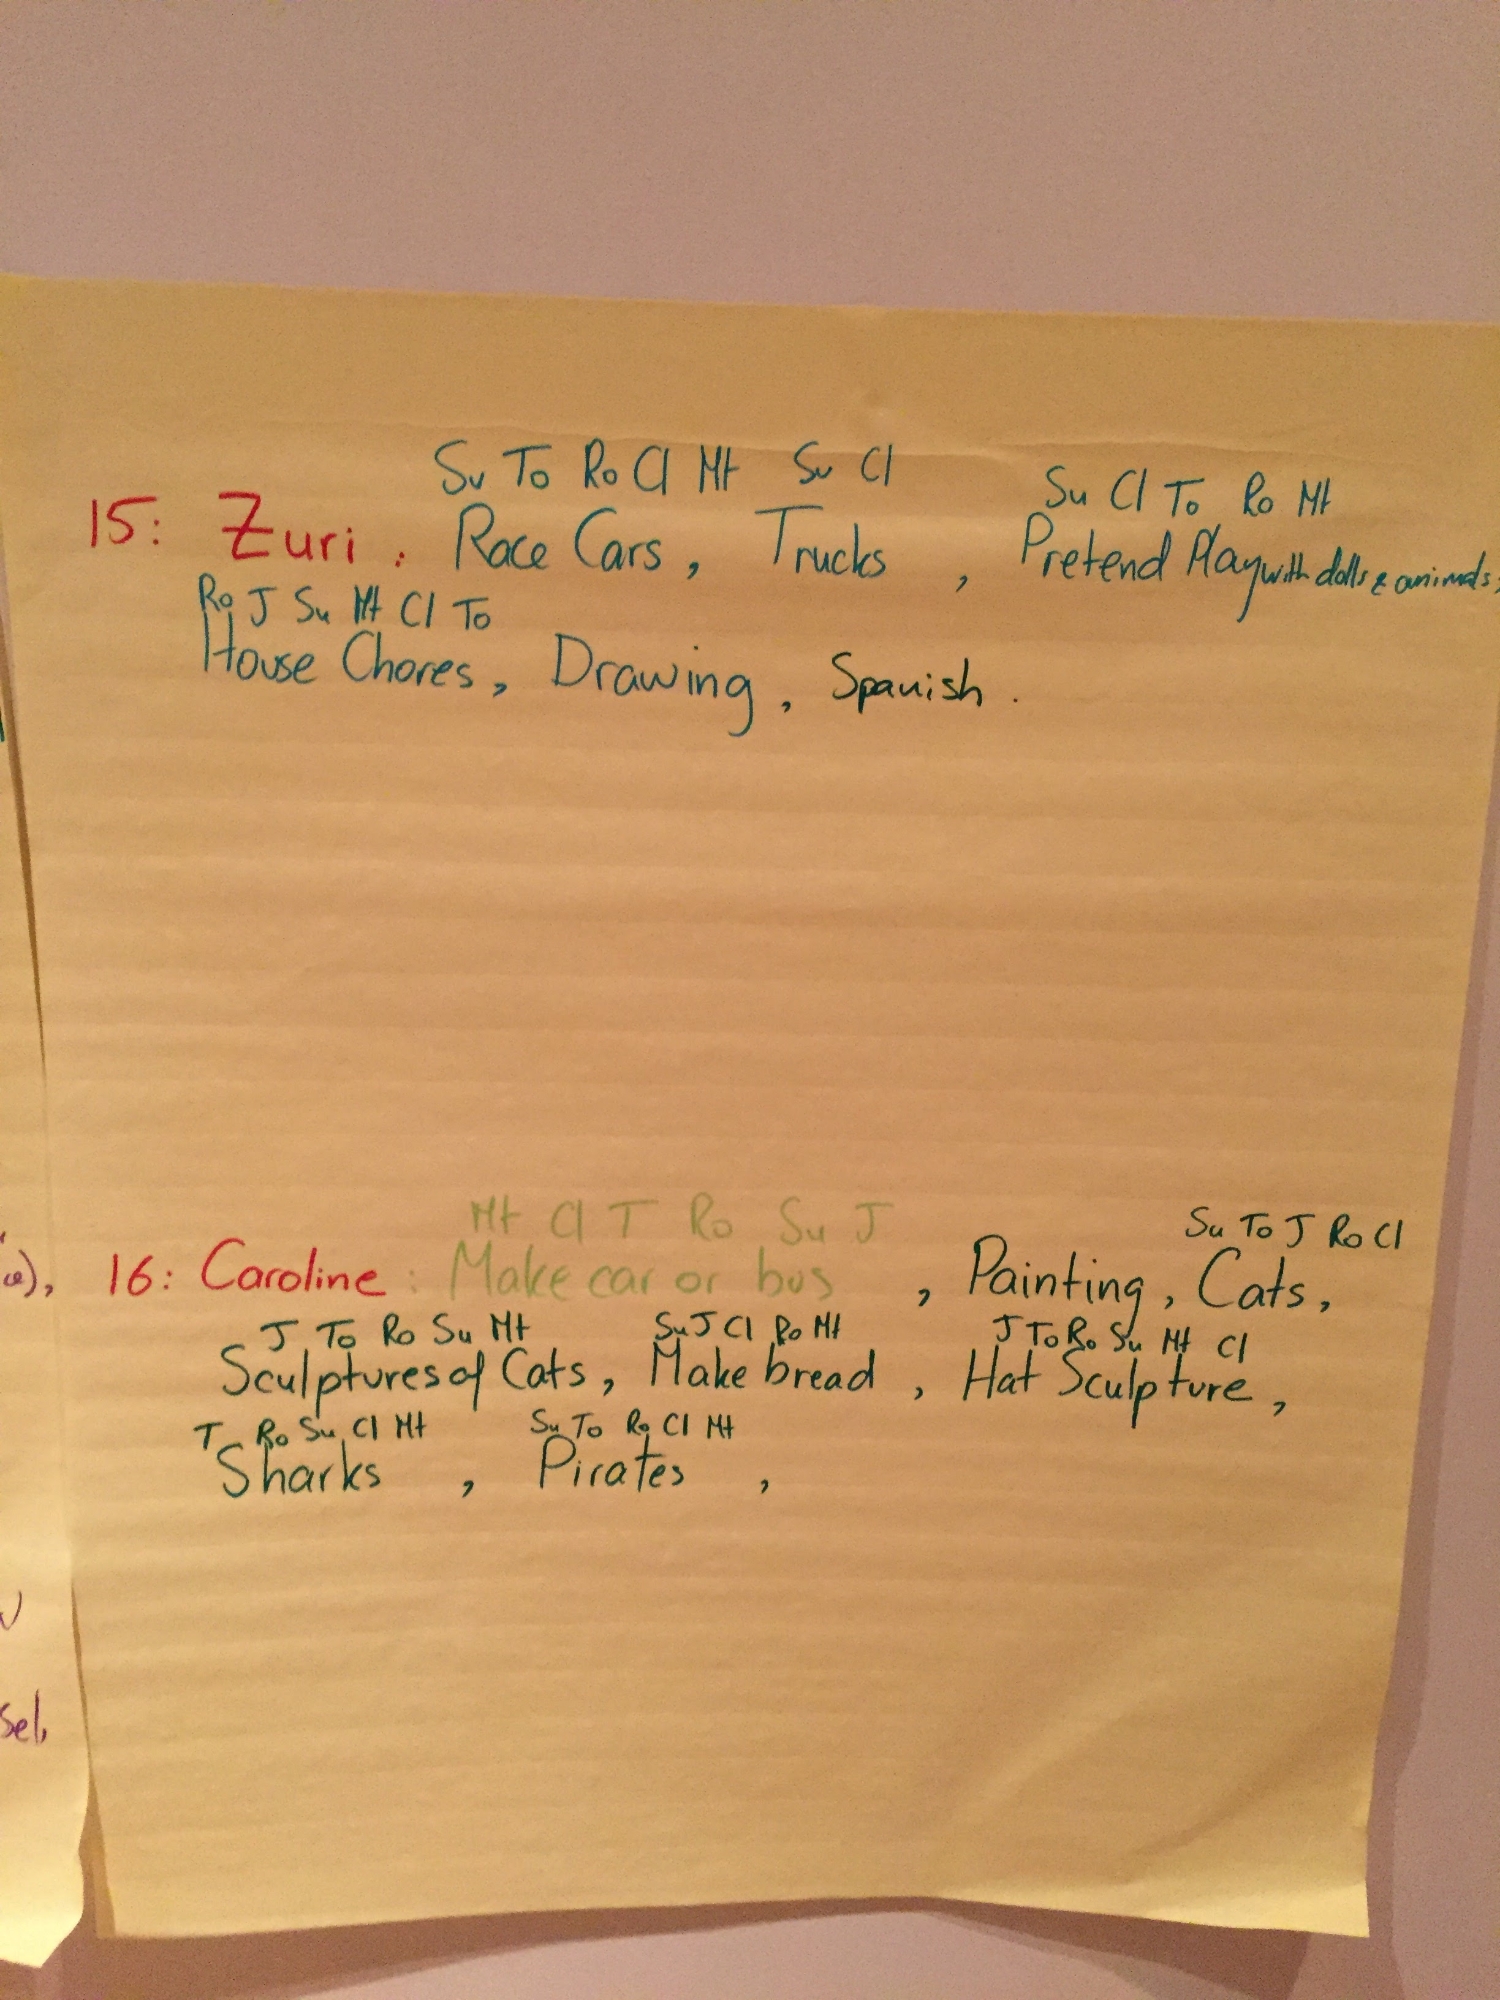 Su To Ro Cl Mt Su Cl Su Cl To Ro Mt
15: Zuri : Race Cars, Trucks , Pretend Play with dolls & animals,
Ro J Su Mt Cl To
House Chores, Drawing, Spanish.
Mt Cl T Ro Su J Su To J Ro Cl
16: Caroline : Make car or bus , Painting, Cats,
J To Ro Su Mt Su J Cl Ro Mt J To Ro Su Mt Cl
Sculptures of Cats, Make bread , Hat Sculpture,
T Ro Su Cl Mt Su To Ro Cl Mt
Sharks , Pirates ,